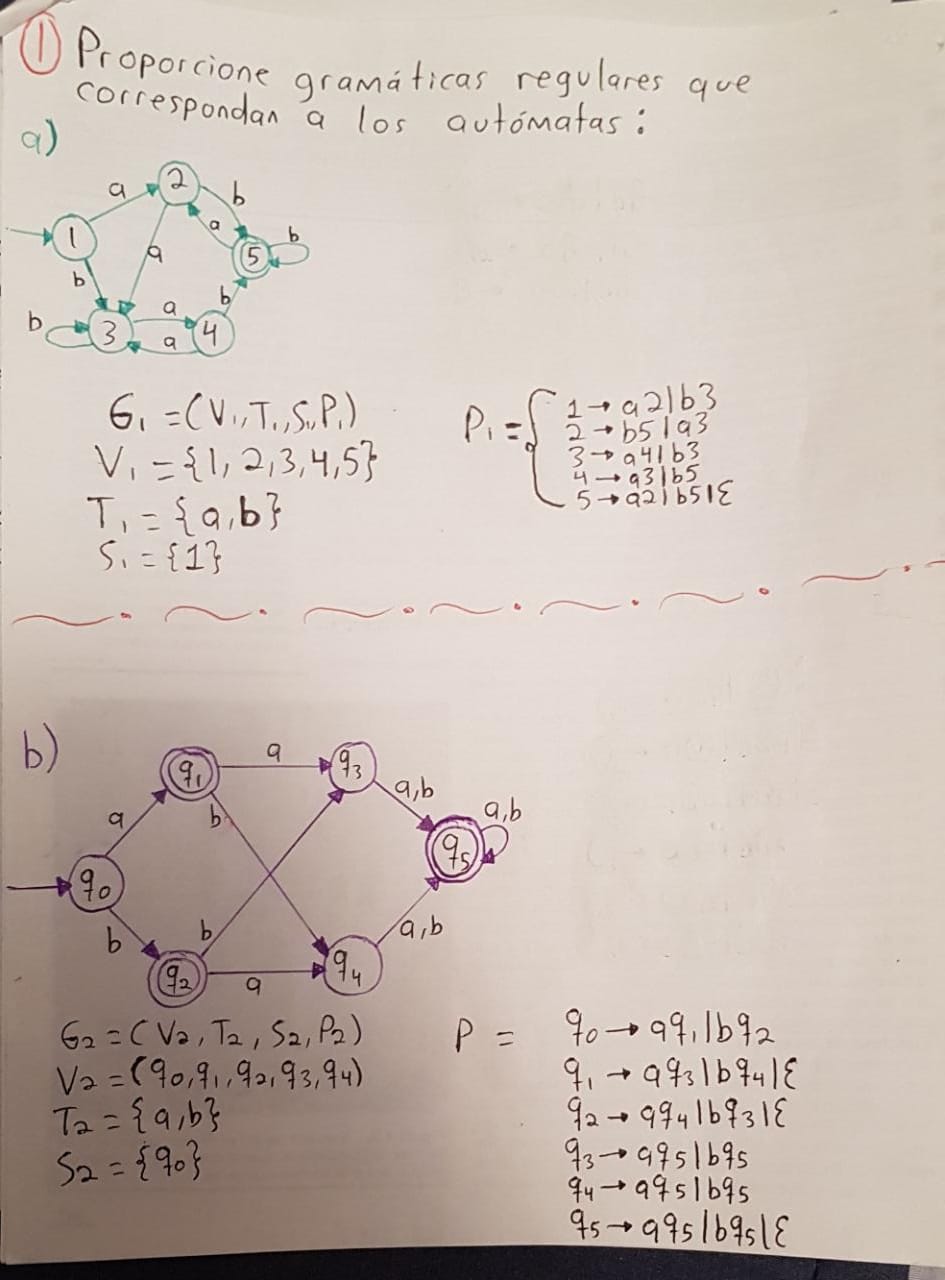 ① Proporcione gramáticas regulares que
correspondan a los autómatas:
a)
a
2
b
1
a
a
5
b
b
b
b
3
a
4
a
G₁ = (V₁, T₁, S₁, P₁)
V₁ = {1, 2, 3, 4, 5}
T₁ = {a, b}
S₁ = {1}
P₁ = {
1 → a2|b3
2 → b5|a3
3 → a4|b3
4 → a3|b5
5 → a2|b5|ε
b)
q₁
a
q₃
a,b
a,b
a
b
q₅
q₀
b
b
a,b
q₂
a
q₄
G₂ = (V₂, T₂, S₂, P₂)
V₂ = (q₀, q₁, q₂, q₃, q₄)
T₂ = {a, b}
S₂ = {q₀}
P =
q₀ → aq₁|bq₂
q₁ → aq₃|bq₄|ε
q₂ → aq₄|bq₃|ε
q₃ → aq₅|bq₅
q₄ → aq₅|bq₅
q₅ → aq₅|bq₅|ε